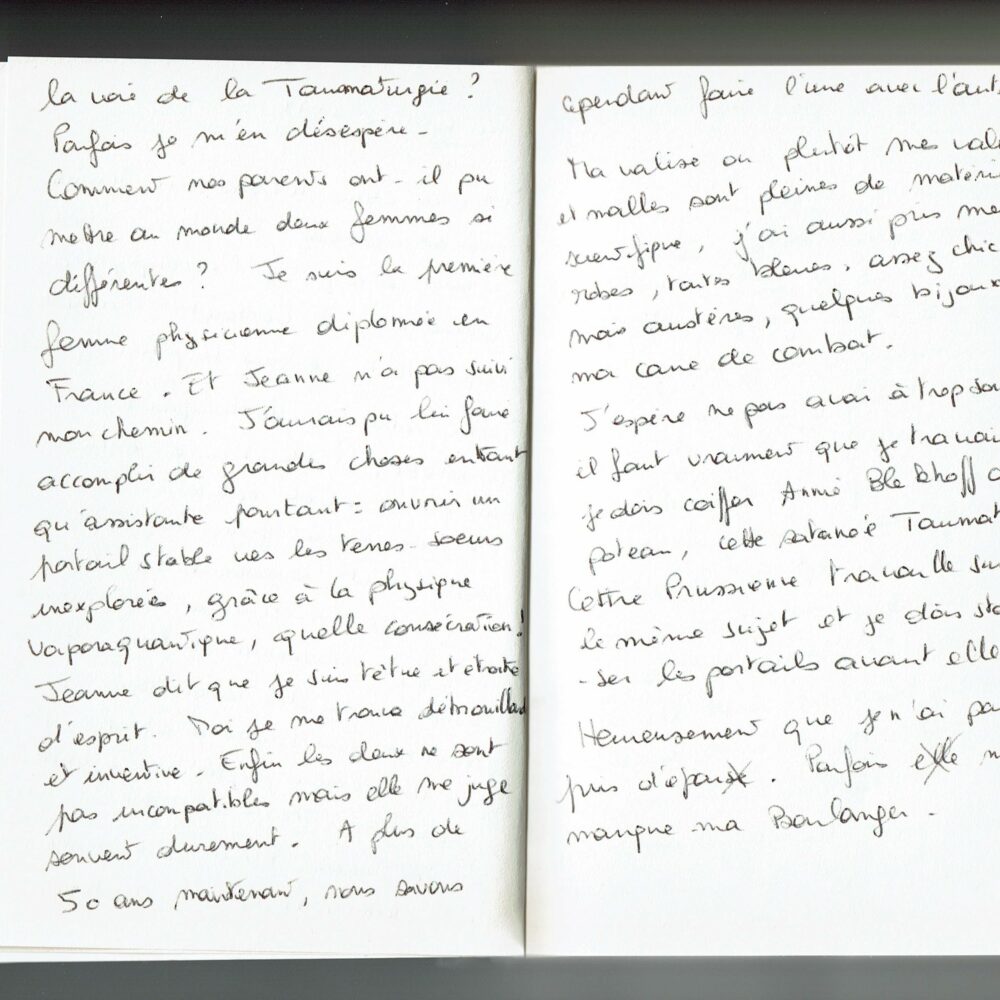 la voie de la Taumaturgie ?
Parfois je m'en désespère -
Comment nos parents ont - il pu
mettre au monde deux femmes si
différentes ? Je suis la première
femme physicienne diplomée en
France . Et Jeanne n'a pas suivi
mon chemin . J'aurais pu lui faire
accomplir de grandes choses en tant
qu'assistante pourtant : ouvrir un
portail stable vers les terres - soeurs
inexplorées , grâce à la physique
vaporaquantique, quelle consécration !
Jeanne dit que je suis têtue et étroite
d'esprit . Moi je me trouve débrouillard
et inventive . Enfin les deux ne sont
pas incompatibles mais elle me juge
souvent durement . A plus de
50 ans maintenant , nous savons
cependant faire l'une avec l'aut
Ma valise ou plutôt mes vali
et malles sont pleines de matéri
scientifique , j'ai aussi pris me
robes , toutes bleues , assez chic
mais austères, quelques bijoux
ma cane de combat .
J'espère ne pas avoi à trop
il faut vraiment que je travai
je dois coiffer Annie Blekhoff a
poteau, cette satanée Taumat
Cette Prussienne travaille su
le même sujet et je dois sta
- ser les portails avant elle
Heureusement que je n'ai pa
pris d'épou . Parfois elle m
manque ma Boulanger .